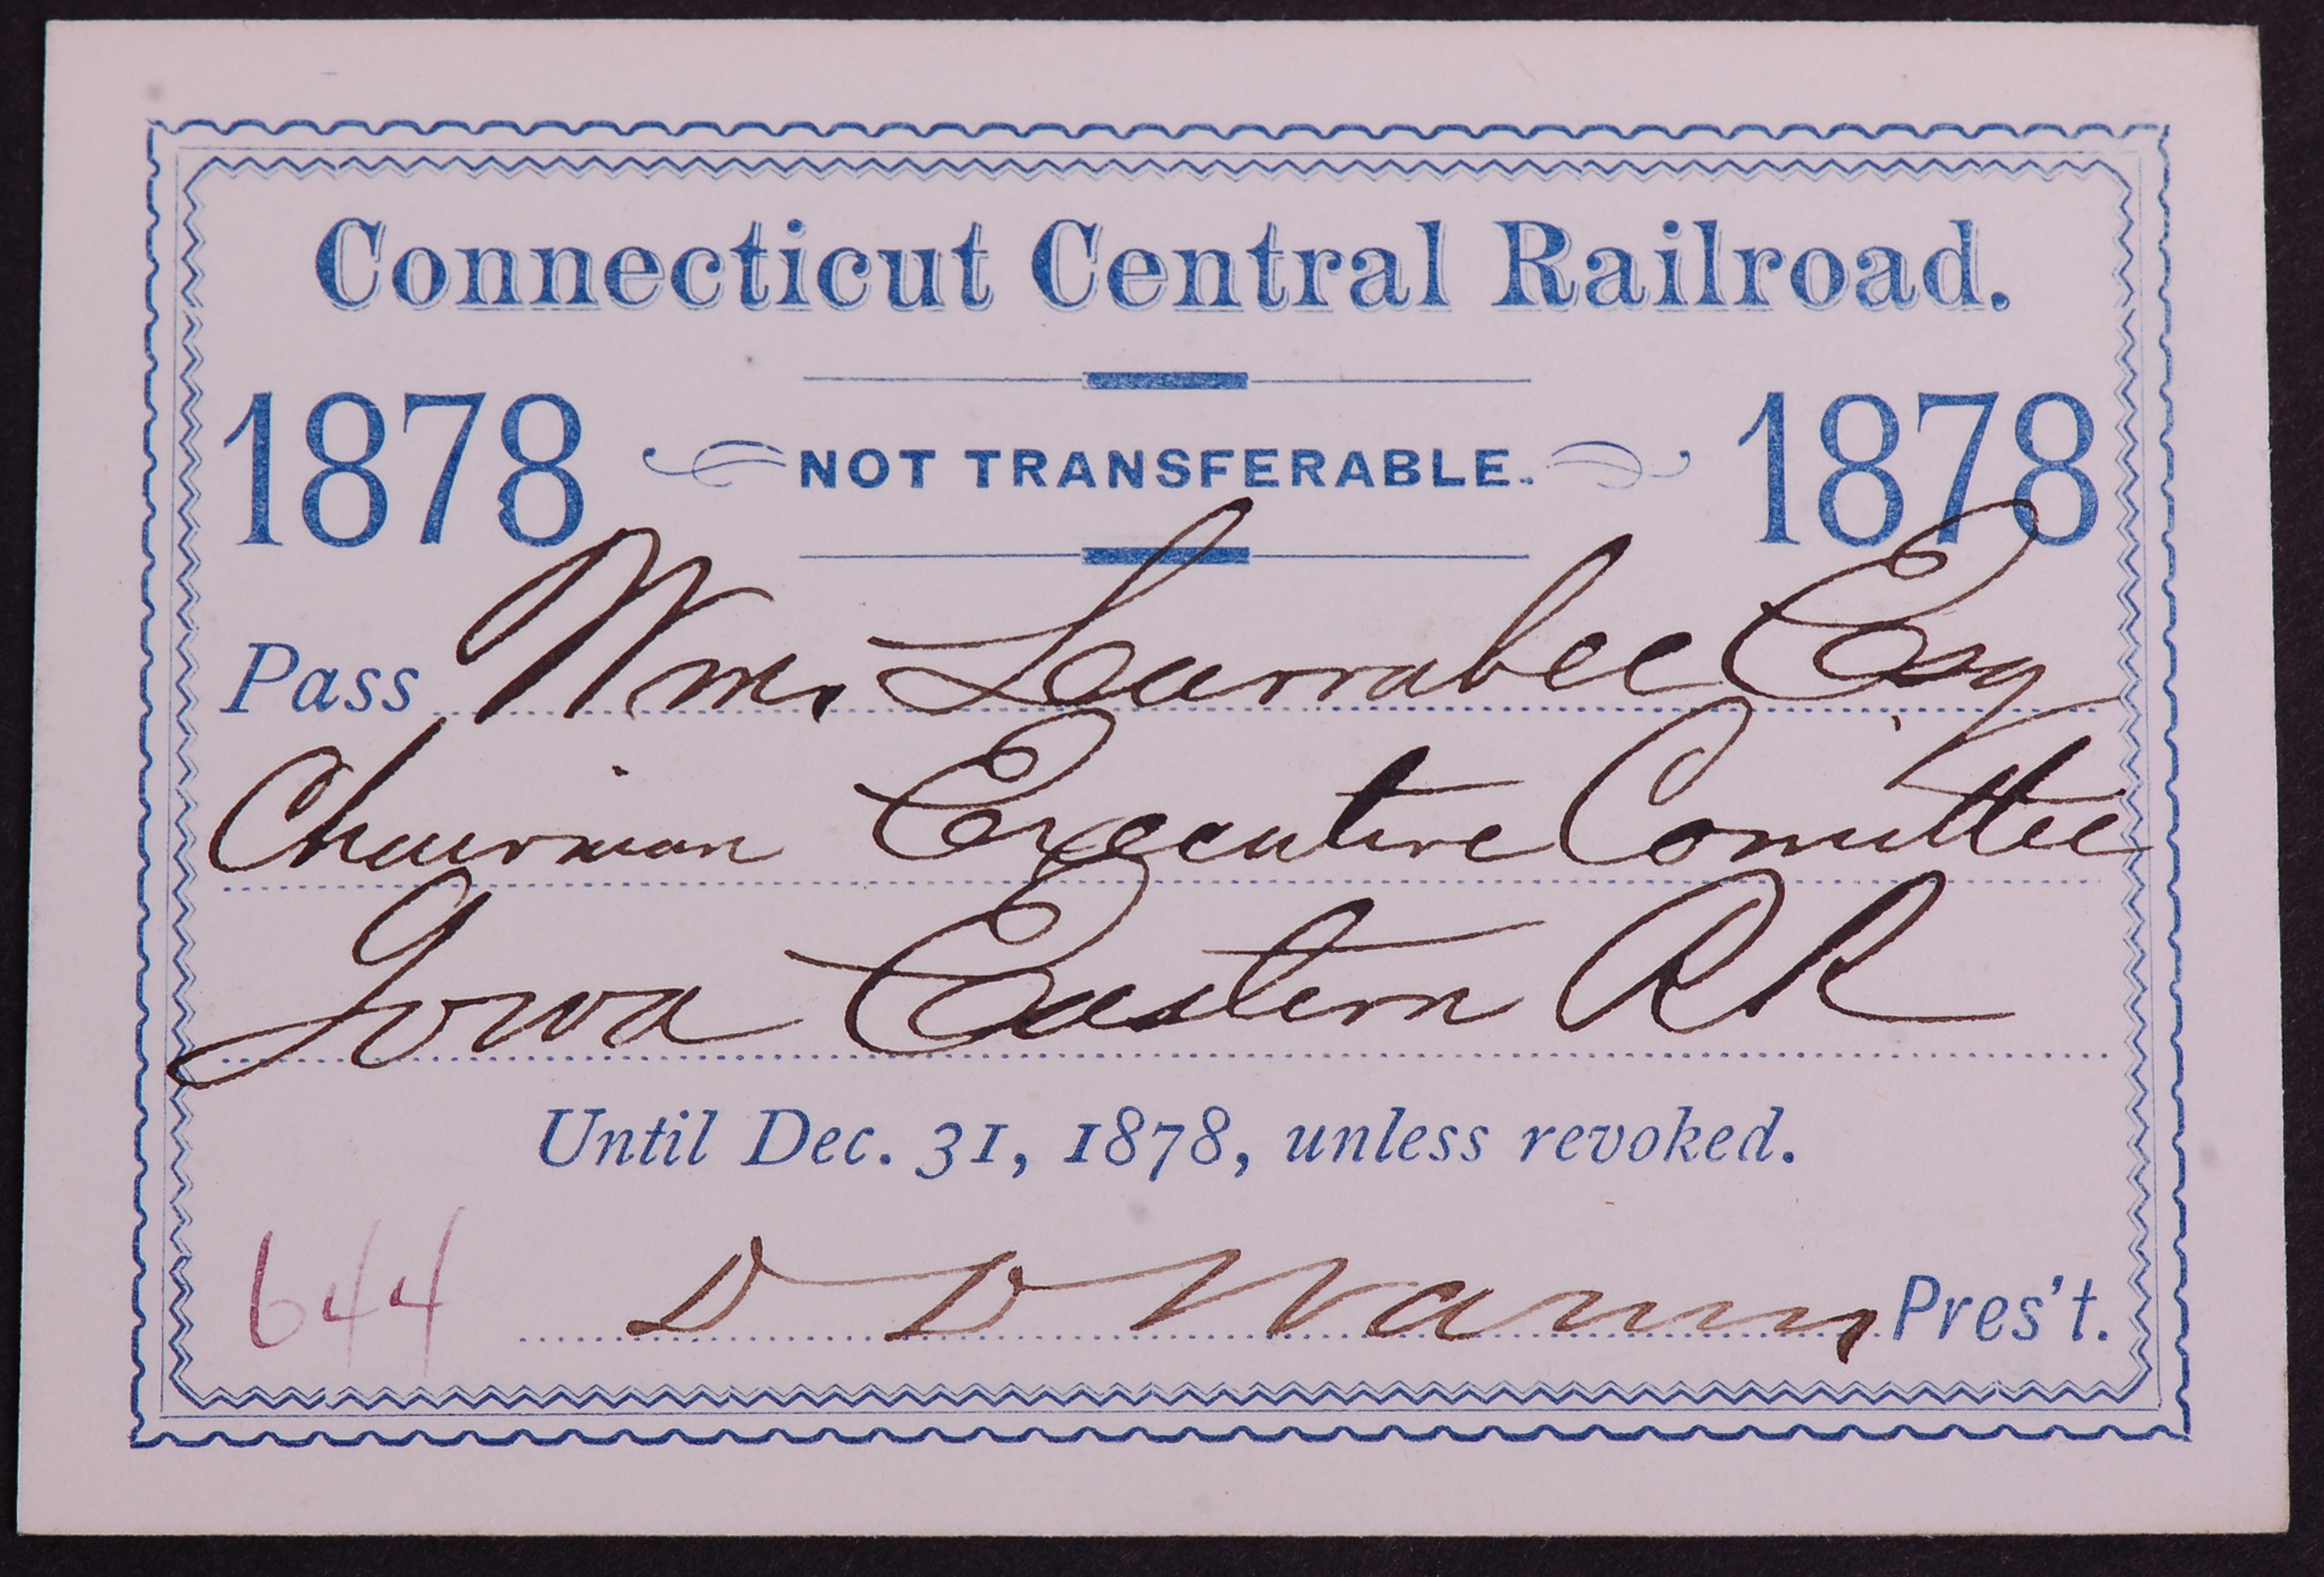 Connecticut Central Railroad.
1878 NOT TRANSFERABLE. 1878
Pass Wm. Larrabee Esq
Chairman Executive Comittee
Iowa Eastern RR
Until Dec. 31, 1878, unless revoked.
644 D D Warren Pres't.